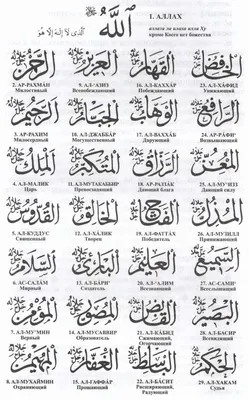 الله
الَّذِي لَا إِلٰهَ إِلَّا هُوَ
1. АЛЛАХ
аллази ла илаха илла Ху
кроме Коего нет божества
الرحمن العزيز القهار الخافض
2. АР-РАХМАН 9. АЛ-'АЗИЗ 16. АЛ-КАХХАР 23. АЛ-ХАФИД
Милостивый Всепобеждающий Победитель Унижающий
الرحيم الجبار الوهاب الرافع
3. АР-РАХИМ 10. АЛ-ДЖАББАР 17. АЛ-ВАХХАБ 24. АР-РАФИ'
Милосердный Могущественный Дарующий Возвышающий
الملك المتكبر الرزاق المعز
4. АЛ-МАЛИК 11. АЛ-МУТАКАББИР 18. АР-РАЗЗАК 25. АЛ-МУ'ИЗЗ
Царь Превосходящий Дающий блага Дающий силу
القدوس الخالق الفتاح المذل
5. АЛ-КУДДУС 12. АЛ-ХАЛИК 19. АЛ-ФАТТАХ 26. АЛ-МУЗИЛЛ
Священный Творец Победитель Принижающий
السلام البارئ العليم السميع
6. АС-САЛАМ 13. АЛ-БАРИ' 20. АЛ-'АЛИМ 27. АС-САМИ'
Мирный Создатель Всезнающий Всеслышащий
المؤمن المصور القابض البصير
7. АЛ-МУ'МИН 14. АЛ-МУСАВВИР 21. АЛ-КАБИД 28. АЛ-БАСИР
Верный Образователь Сжимающий, Огорчающий Всевидящий
المهيمن الغفار الباسط الحكم
8. АЛ-МУХАЙМИН 15. АЛ-ГАФФАР 22. АЛ-БАСИТ 29. АЛ-ХАКАМ
Охраняющий Прощающий Расширяющий, Радующий Судья